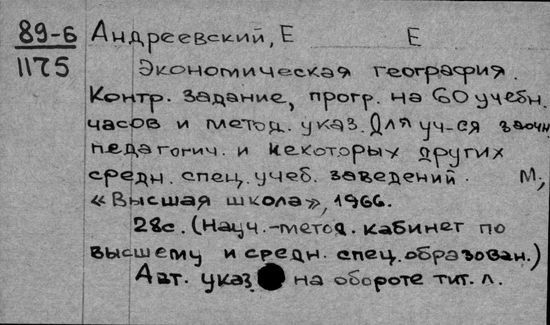 89-6 Андреевский, Е Е
1175
Экономическая география.
Контр. задание, прогр. на 60 учебн.
часов и метод. указ. Для уч-ся заочн.
педагогич. и некоторых других
средн. спец. учеб. заведений. М.,
«Высшая школа», 1966.
28с. (Науч.-метод. кабинет по
высшему и средн. спец. образован.)
Авт. указ. на обороте тит. л.